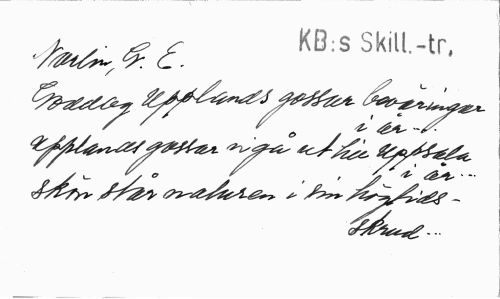 KB:s Skill.-tr.
Norlin, G. E.
Goddag Upplands gossar beväringar
i är...
Upplands gossar vi gå ut till Uppsala
i är...
skön står naturen i sin högtids-
skrud...